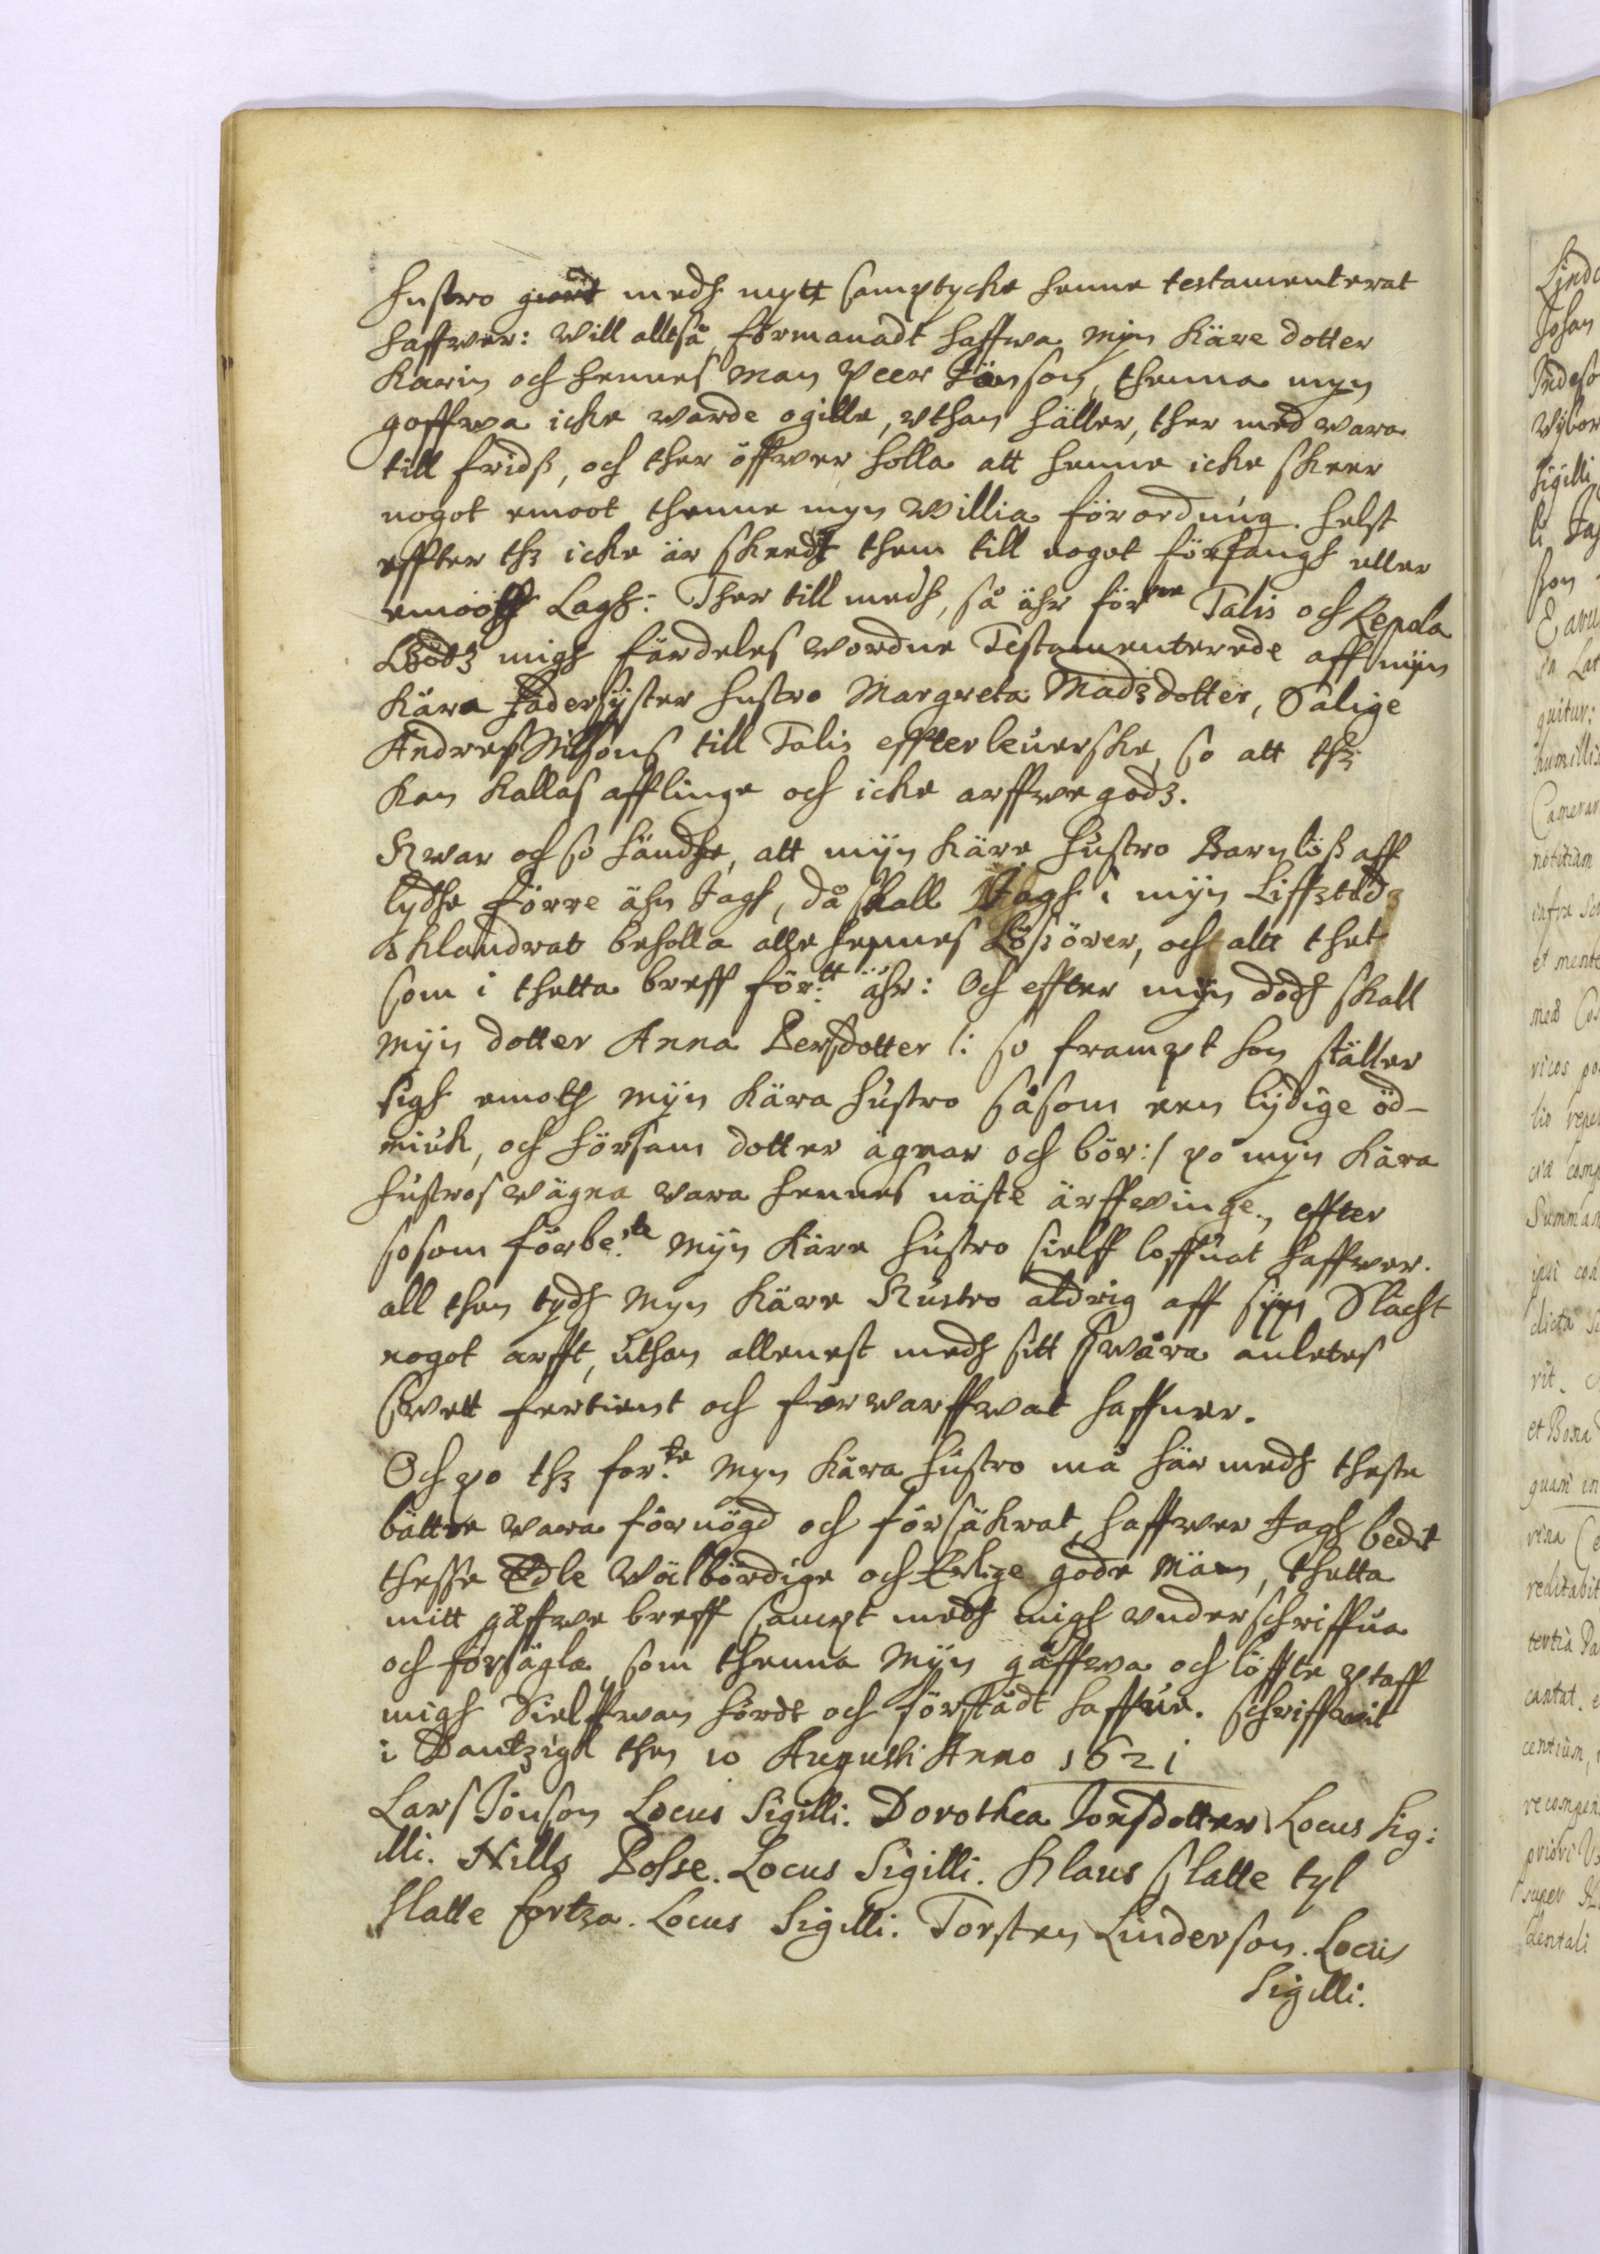 hustro giordt medh mytt samptycke henne testamenterat
haffver: Will alltså förmanadt haffva mijn käre dotter
Karin och hennes man Peer Jönson, thenna myn
gåffwa icke warde ogille, vthan häller, ther med wara
till fridß, och ther öffwer holla att henne icke skeer
nogot emoot thenne myn willia förordning. helst
effter thz icke är skeedt them till nogot förfangh eller
emooth Lagh: Ther till medh, så ähr för:ne Talis och Repola
migh färdeles wordne Testamenterede aff mijn
kära Fadersyster hustro Margreta Madzdotter, Salige
Andres Nilsons till Talis effterleuerske, so att thz
kan kallas afflinge och icke arffwe godz.
Kwar och so händhe, att mijn käre hustro Barnlöß aff
lydhe förre ähn Jagh, då skall Jagh i mijn Liffztidz
oklandrat beholla alle hennes Lößörer, och allt thet
som i thetta breff för:tt ähr: Och effter mijn dödh skall
mijn dotter Anna Persdotter /: so frampt hon ställer
sigh emoth mijn kära hustro såsom een lydige öd-
miuk, och hörsam dotter ägnar och bör :/ po mijn kära
hustros wägna vara hennes näste ärffwinge, effter
sosom förbe:te mijn käre hustro sielff loffuat haffwer.
all then tydh myn käre Hustro aldrig aff sijn Slächt
nogot arfft, uthan allenest medh sitt swåra anletes
swett fertient och förwarffwat haffuer.
Och po thz for:te myn kära hustro må här medh theste
bättre wara förnögd och försäkrat, haffwer Jagh bedit
thesse Edle Wälbördige och Erlige gode Män, thetta
mitt gåffwe breff sampt medh migh underschriffua
och försägla, som thenna Mijn gåffwa och löffte vtaff
migh Sielffwan hördt och förstådt haffue. schriffwit
i Dantzigk then 10 Augusti Anno 1621
Lars Jönson Locus Sigilli. Dorothea Jonsdotter Locus Sig:
illi. Nills Bosse. Locus Sigilli. Klaus Slatte tyl
Slatte fortza. Locus Sigilli. Torsten Linderson. Locus
Sigilli.